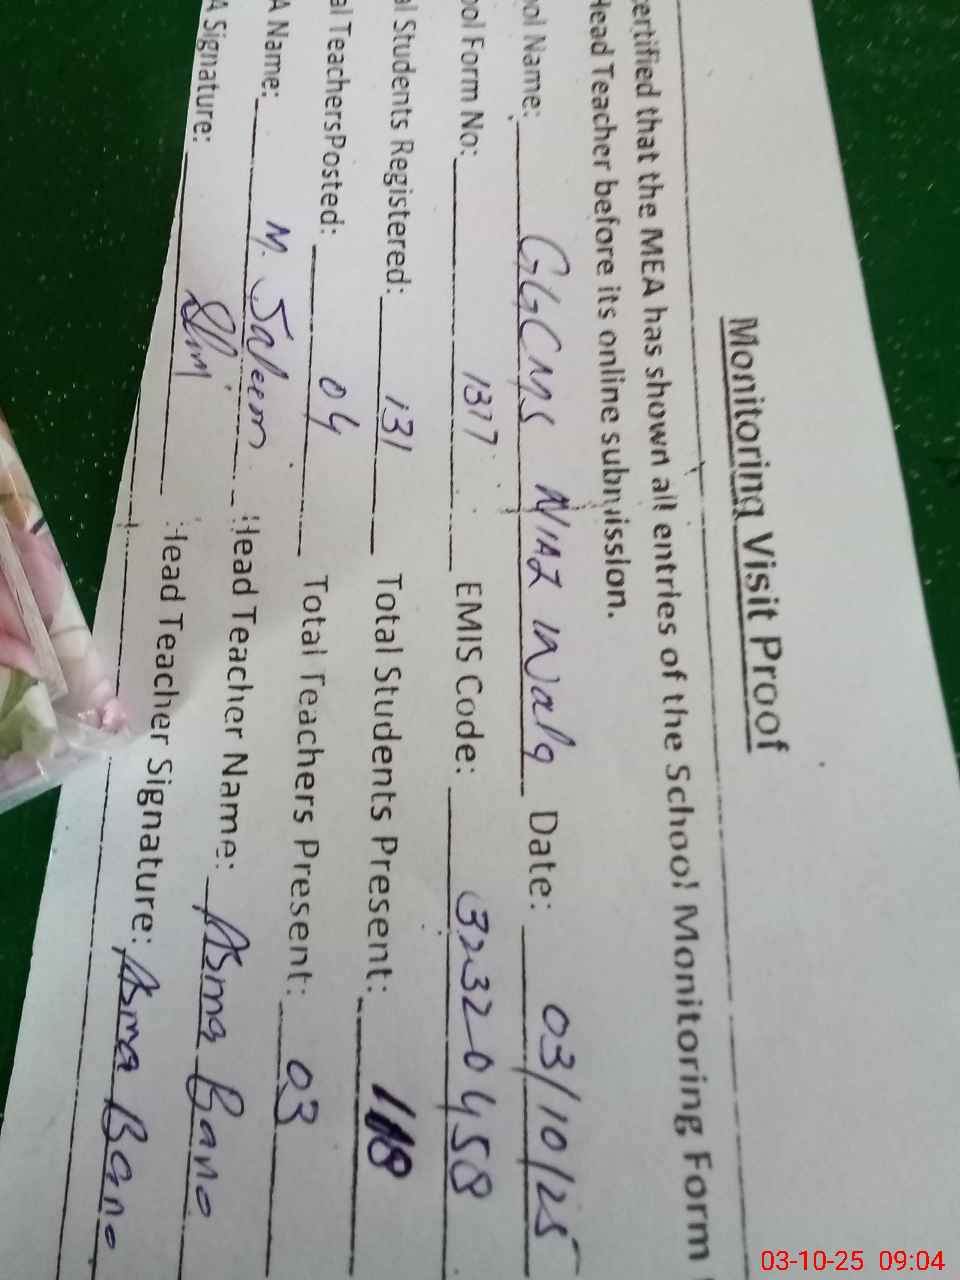 Monitoring Visit Proof
ertified that the MEA has shown all entries of the School Monitoring Form
Head Teacher before its online submission.
ool Name: GGCMS NIAZ Wala Date: 03/10/25
ool Form No: 1317 EMIS Code: 32320458
al Students Registered: 131 Total Students Present: 118
al TeachersPosted: 04 Total Teachers Present: 03
A Name: M. Saleem Head Teacher Name: Asma Bano
A Signature: Slm Head Teacher Signature: Asma Bano
03-10-25 09:04